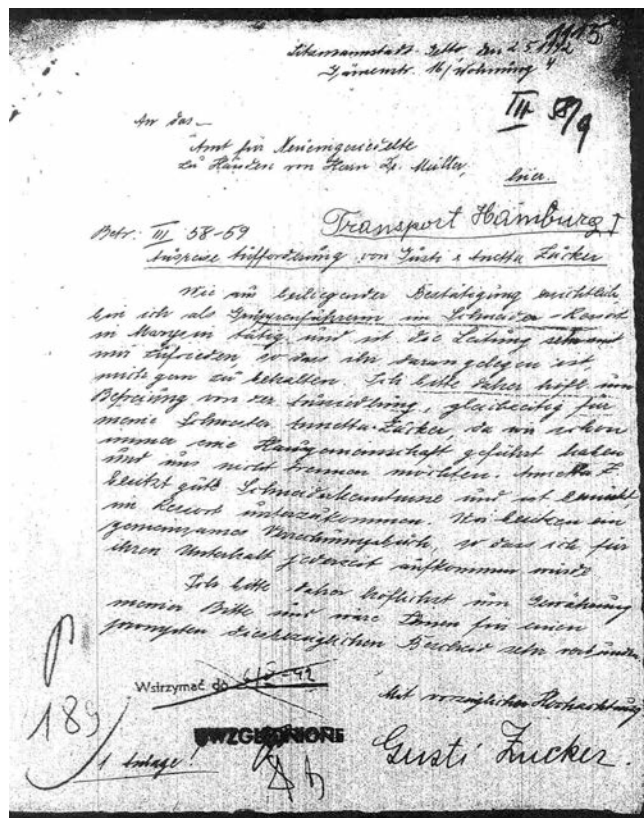 1115
Litzmannstadt-Getto, den 2.5.1942
16/Wohnung 4
III 58/9
An das
Amt für Neueingesiedelte
zu Händen von Herrn Dr. Müller,
hier.
Transport Hamburg I
Betr. III 58-59
Ausreise Aufforderung von Gusti & Annetta Zucker
Wie aus beiliegender Bestätigung ersichtlich,
bin ich als Gruppenführerin im Schneider-Ressort
in Marysin tätig und ist die Leitung sehr mit
mir zufrieden, so dass ihr daran gelegen ist,
mich gern zu behalten. Ich bitte daher höfl. um
Befreiung von der Aussiedlung, gleichzeitig für
meine Schwester Annetta Zucker, da wir schon
immer eine Hausgemeinschaft geführt haben
und uns nicht trennen möchten. Annetta Z.
besitzt gute Schneiderkenntnisse und ist bemüht,
im Ressort unterzukommen. Wir besitzen ein
gemeinsames so dass ich für
ihren Unterhalt jederzeit aufkommen würde
Ich bitte daher höflichst um Gewährung
meiner Bitte und wäre Ihnen für einen
prompten diesbezüglichen Bescheid sehr verbunden.
Wstrzymać do
Mit vorzüglicher Hochachtung
189
UWZGLĘDNIONE
1 Anlage!
Gusti Zucker.